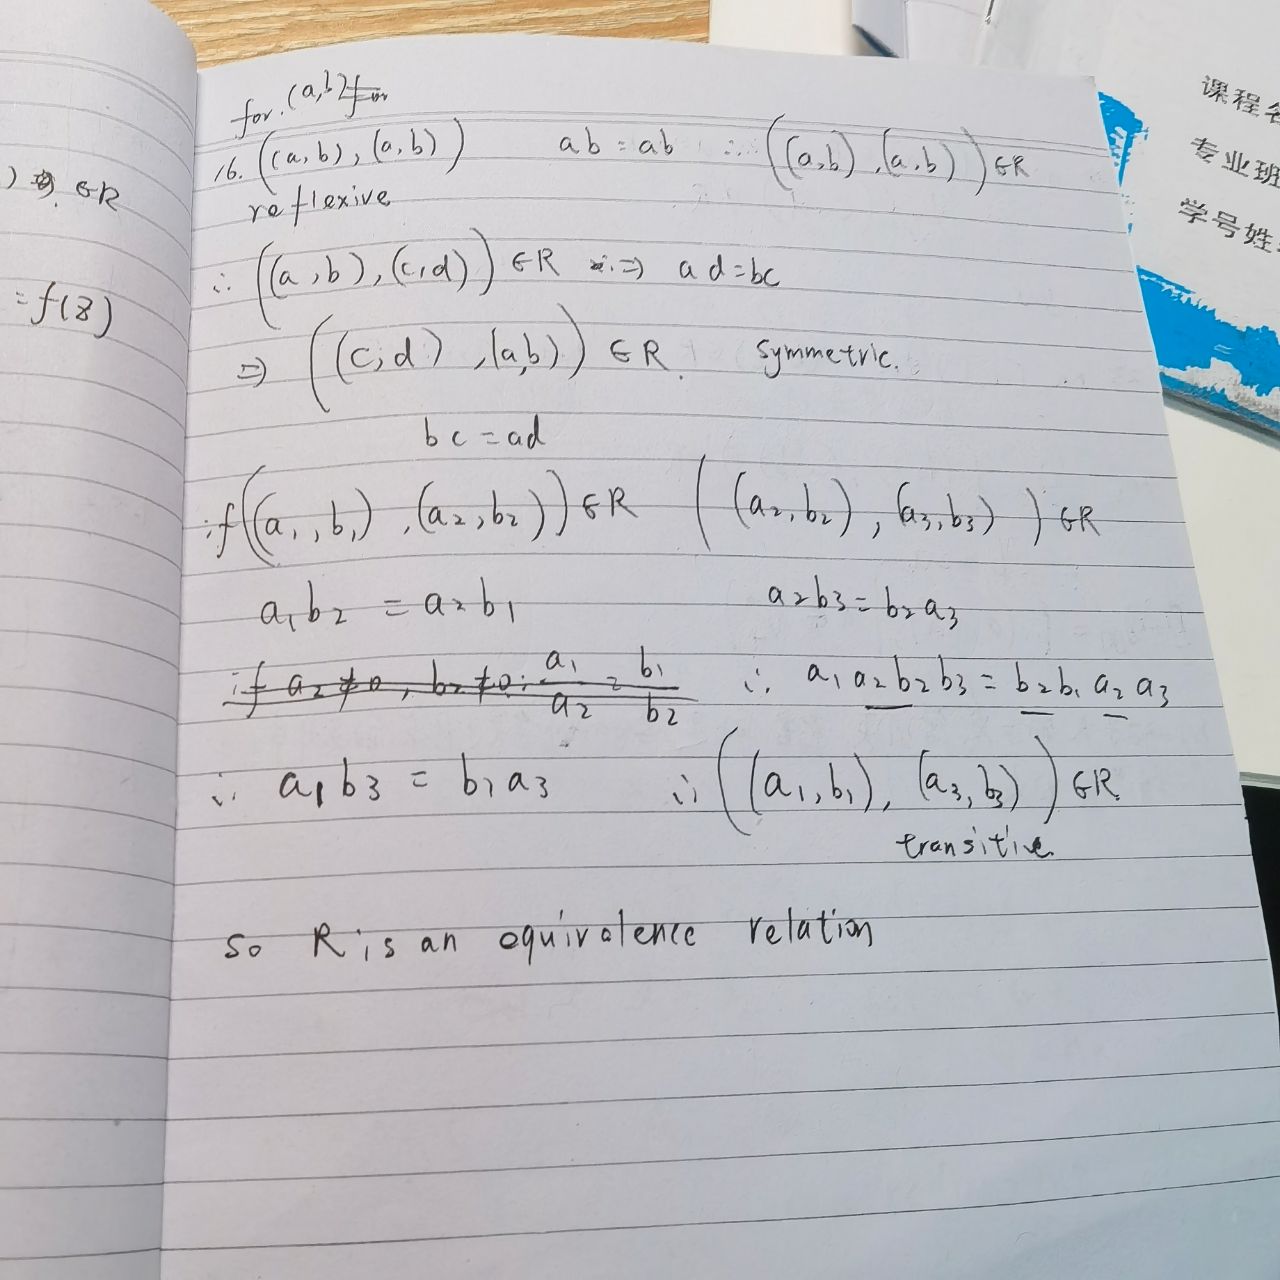 ) ∈R
=f(z)
for. (a,b) for
16. ((a,b),(a,b)) ab=ab ∴ ((a,b),(a,b))∈R
reflexive
∴ ((a,b),(c,d))∈R ⇒ ad=bc
⇒ ((c,d),(a,b))∈R. symmetric.
bc=ad
if((a₁,b₁),(a₂,b₂))∈R ((a₂,b₂),(a₃,b₃))∈R
a₁b₂ = a₂b₁ a₂b₃=b₂a₃
if a₂≠0, b₂≠0: a₁/a₂ = b₁/b₂ ∴ a₁a₂b₂b₃=b₂b₁a₂a₃
∴ a₁b₃ = b₁a₃ ∴ ((a₁,b₁),(a₃,b₃))∈R.
transitive
so R is an equivalence relation
课程名
专业班
学号姓